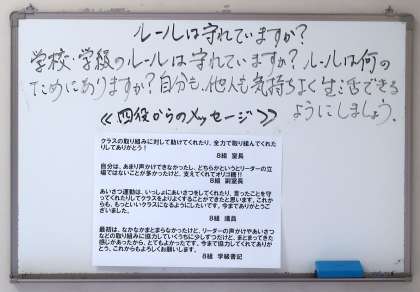 ルールは守れていますか?
学校・学級のルールは守れていますか?ルールは何の
ためにありますか?自分も、他人も気持ちよく生活できる
ようにしましょう.
≪四役からのメッセージ≫
クラスの取り組みに対して動けてくれたり、全力で取り組んでくれた
りしてありがとう!
8組 室長
自分は、あまり声かけできなかったし、どちらかというとリーダーの立
場ではないことが多かったけど、支えてくれてオリゴ糖!!
8組 副室長
あいさつ運動は、いっしょにあいさつをしてくれたり、言ったことを守
ってくれたりしてクラスをよりよくすることができたと思います。これか
らも、もっといいクラスになるようにしたいです。今までありがとうご
ざいました。
8組 議員
最初は、なかなかまとまらなかったけど、リーダーの声かけやあいさつ
などの取り組みに協力していくうちに少しずつだけど、まとまってきた
感じがあったから、とてもよかったです。今まで協力してくれてありが
とう、これからもよろしくお願いします。
8組 学級書記